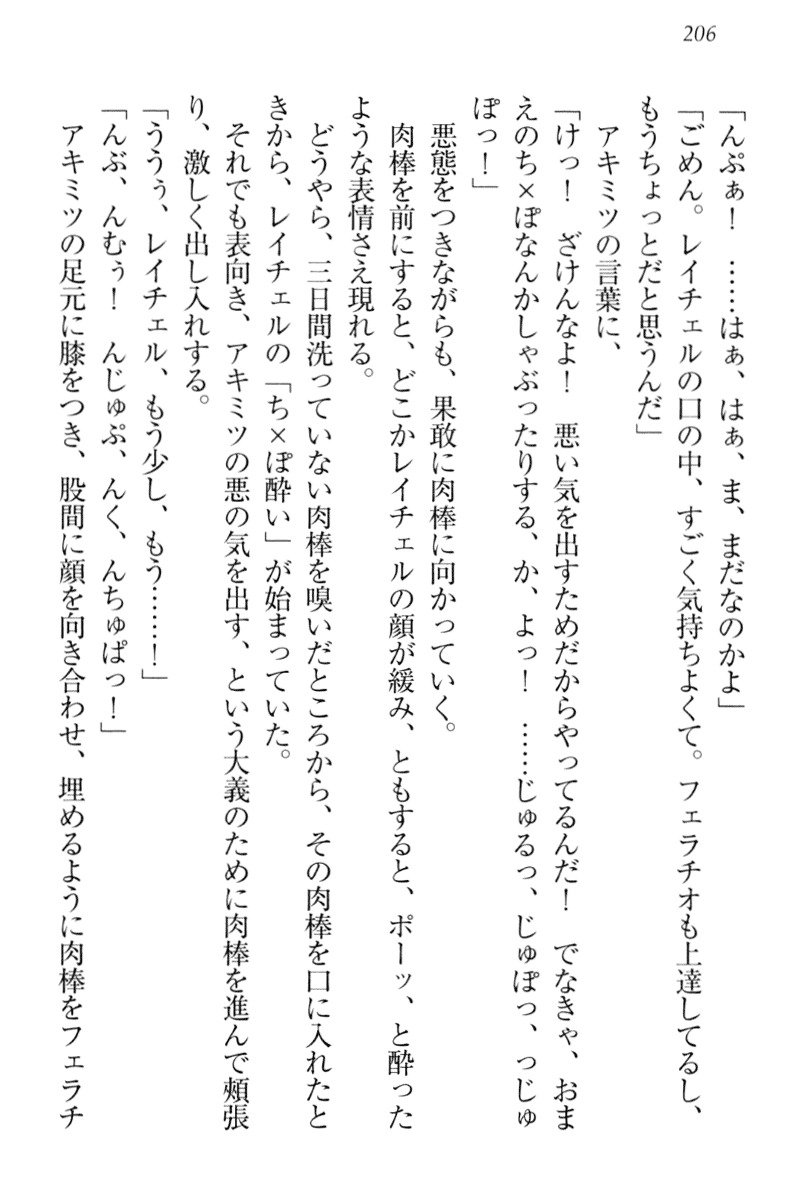 206
「んぷぁ！　……はぁ、はぁ、ま、まだなのかよ」
「ごめん。レイチェルの口の中、すごく気持ちよくて。フェラチオも上達してるし、
もうちょっとだと思うんだ」
　アキミツの言葉に、
「けっ！　ざけんなよ！　悪い気を出すためだからやってるんだ！　でなきゃ、おま
えのち×ぽなんかしゃぶったりする、か、よっ！　……じゅるっ、じゅぽっ、っじゅ
ぽっ！」
　悪態をつきながらも、果敢に肉棒に向かっていく。
　肉棒を前にすると、どこかレイチェルの顔が緩み、ともすると、ポーッ、と酔った
ような表情さえ現れる。
　どうやら、三日間洗っていない肉棒を嗅いだところから、その肉棒を口に入れたと
きから、レイチェルの「ち×ぽ酔い」が始まっていた。
　それでも表向き、アキミツの悪の気を出す、という大義のために肉棒を進んで頬張
り、激しく出し入れする。
「ううぅ、レイチェル、もう少し、もう……！」
「んぶ、んむぅ！　んじゅぷ、んく、んちゅぱっ！」
　アキミツの足元に膝をつき、股間に顔を向き合わせ、埋めるように肉棒をフェラチ